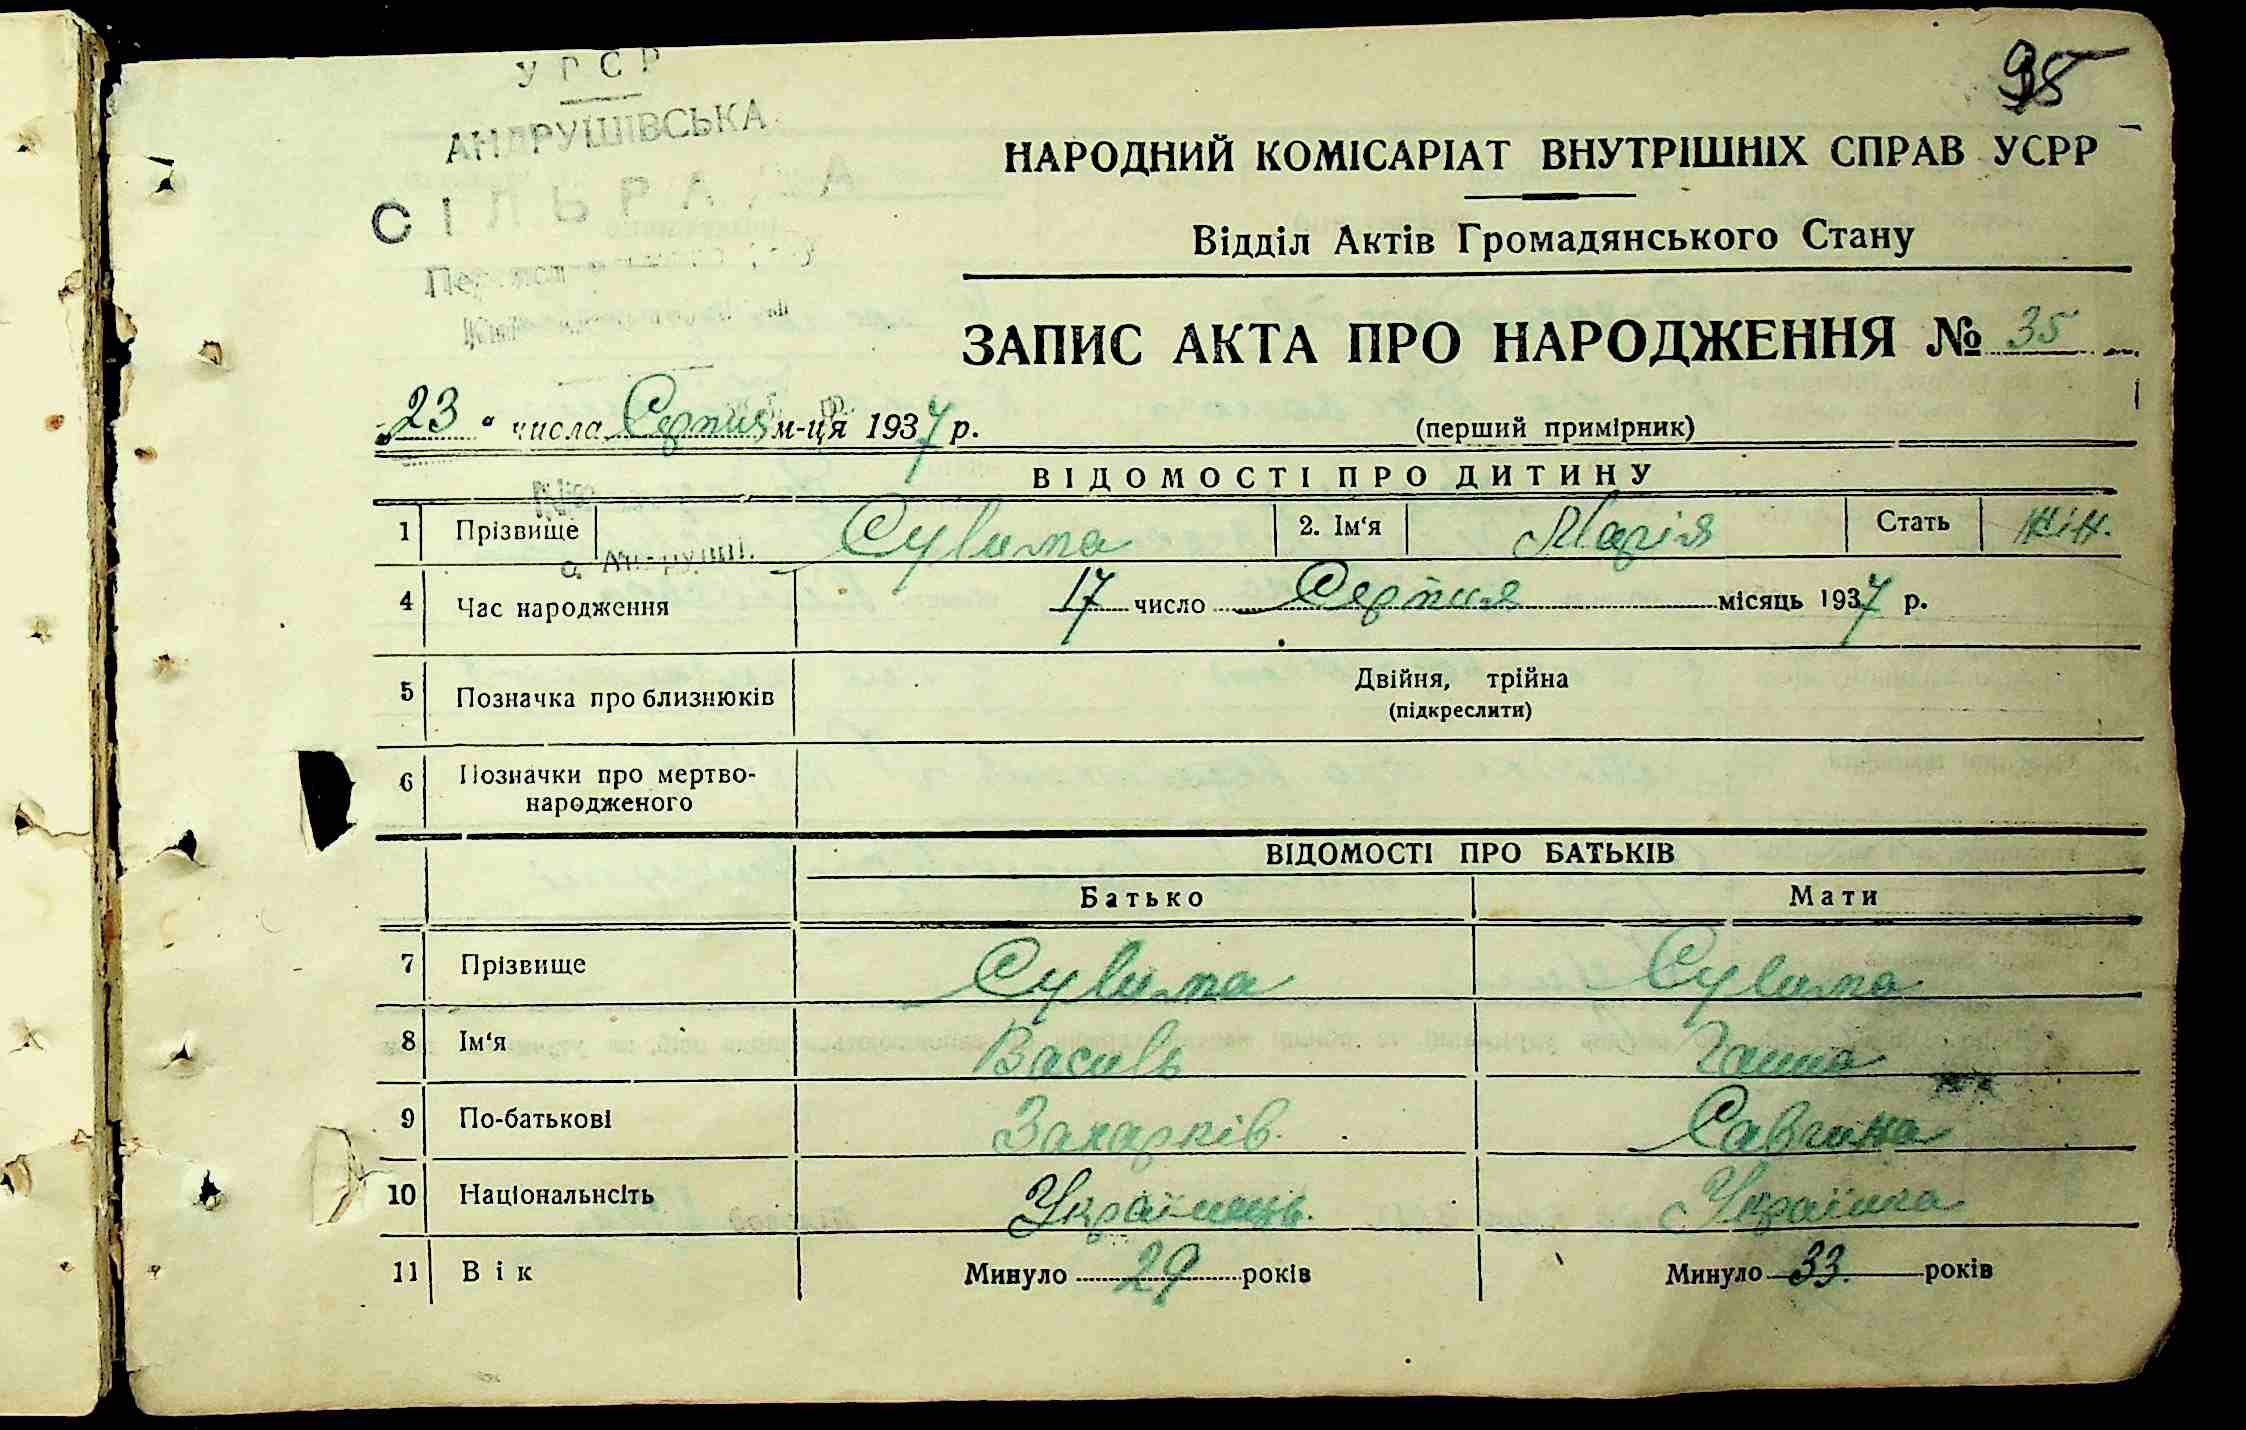 УРСР
95
АНДРУШІВСЬКА
СІЛЬРАДА
НАРОДНИЙ КОМІСАРІАТ ВНУТРІШНІХ СПРАВ УСРР
Відділ Актів Громадянського Стану
ЗАПИС АКТА ПРО НАРОДЖЕННЯ № 35
23 " числа Серпня м-ця 1937 р.
(перший примірник)
ВІДОМОСТІ ПРО ДИТИНУ
1 Прізвище Сулима 2. Ім'я Марія Стать жін.
4 Час народження 17 число Серпня місяць 1937 р.
5 Позначка про близнюків Двійня, трійна
(підкреслити)
6 Позначки про мертво-
народженого
ВІДОМОСТІ ПРО БАТЬКІВ
Батько Мати
7 Прізвище Сулима Сулима
8 Ім'я Василь Ганна
9 По-батькові Захарків
10 Національнсіть Українець Українка
11 Вік Минуло 29 років Минуло 33 років